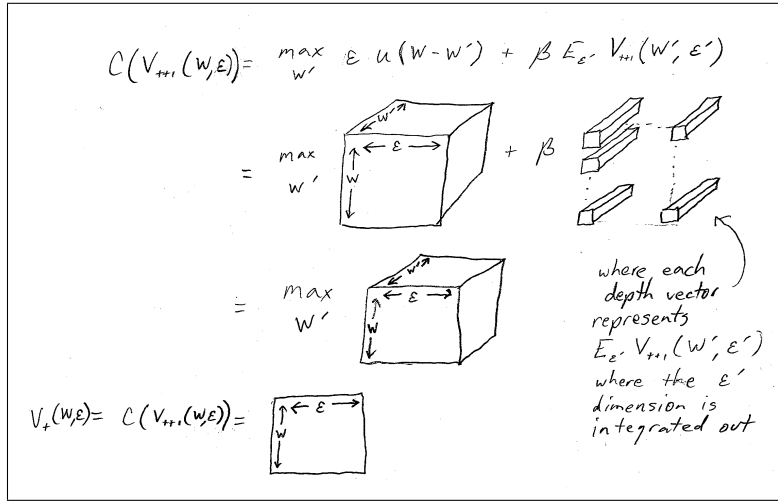 C(V_{t+1}(W,ε)) = max_{W'} ε u(W-W') + β E_{ε'} V_{t+1}(W', ε')
= max_{W'} W' ← ε → W + β
= max_{W'} W' ← ε → W
where each
depth vector
represents
E_{ε'} V_{t+1}(W', ε')
where the ε'
dimension is
integrated out
V_t(W,ε) = C(V_{t+1}(W,ε)) = ← ε → W